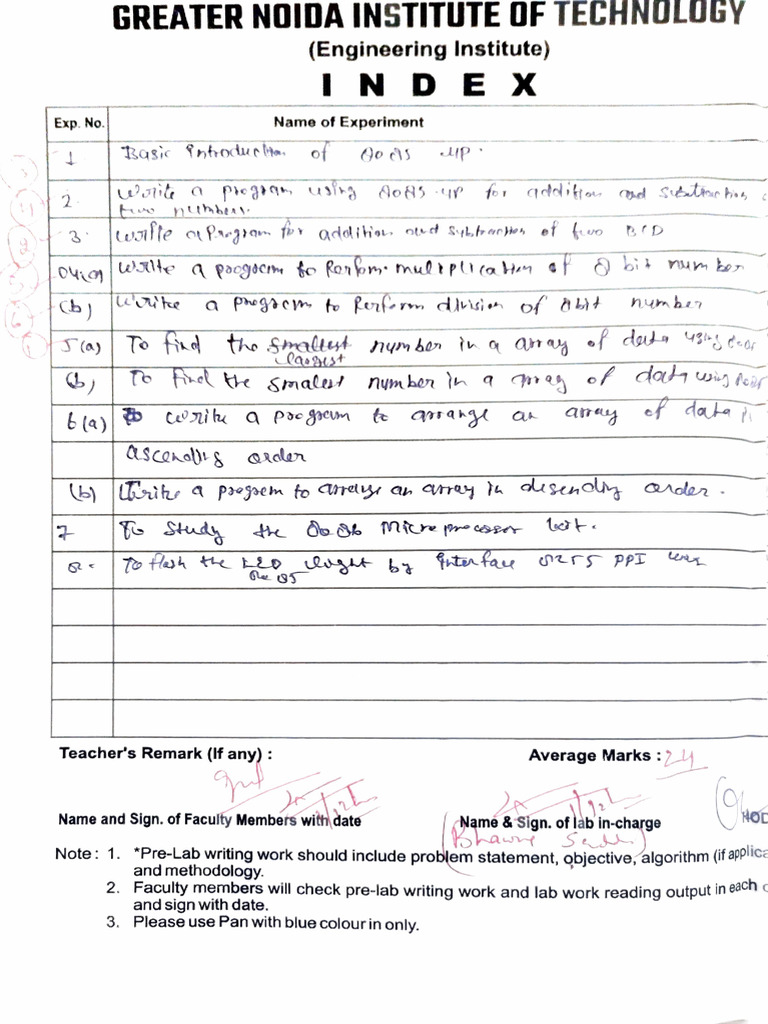 GREATER NOIDA INSTITUTE OF TECHNOLOGY
(Engineering Institute)
INDEX
Exp. No. Name of Experiment
1 Basic Introduction of 8085 MP.
2. Write a program using 8085 MP for addition and subtraction
two numbers.
3. Write a Program for addition and subtraction of two BCD
04(a) Write a program to Perform multiplication of 8 bit number
(b) Write a program to Perform division of 8bit number
5(a) To find the smallest number in a array of data using 8085
largest
(b) To find the smalest number in a array of data using 8085
6(a) Write a program to arrange an array of data
ascending order
(b) Write a program to arrange an array in desending order.
7 To Study the 8086 Microprocessor kit.
8. To flash the LED by Interface 8255 PPI
8085
Teacher's Remark (If any) : Average Marks : 24
Name and Sign. of Faculty Members with date Name & Sign. of lab in-charge HOD
Note : 1. *Pre-Lab writing work should include problem statement, objective, algorithm (if applica
and methodology.
2. Faculty members will check pre-lab writing work and lab work reading output in each
and sign with date.
3. Please use Pan with blue colour in only.